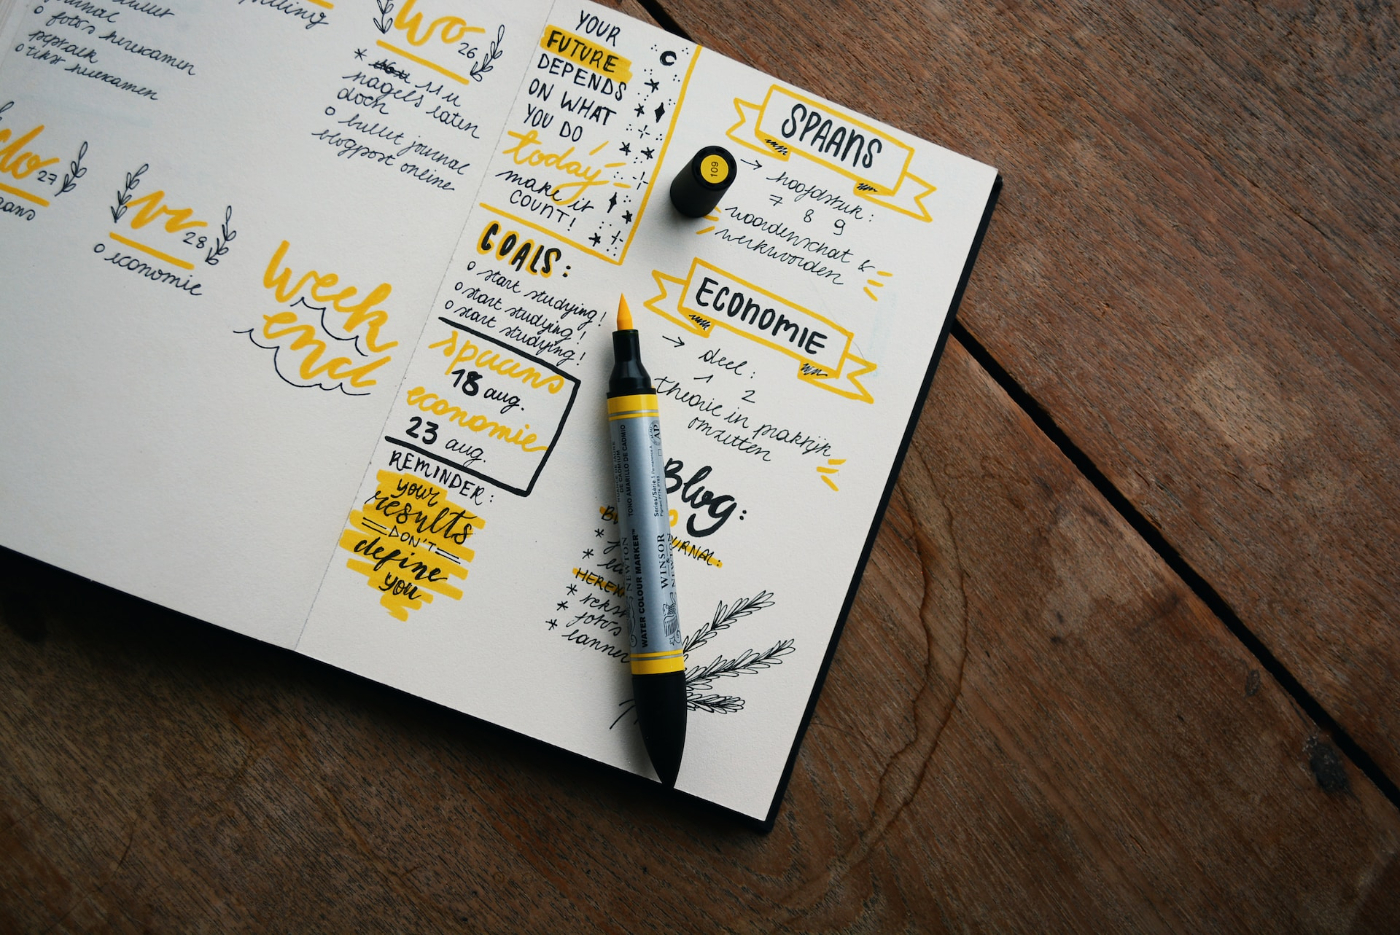 journal
foto's hierkamen
tekst hierkamen
wo 26
* 11 u
nagels laten
doen
o bullet journal
blogpost online
do 27
vr 28
o economie
week
end
YOUR
FUTURE
DEPENDS
ON WHAT
YOU DO
today
make it
COUNT!
GOALS:
o start studying!
o start studying!
o start studying!
spaans
18 aug.
economie
23 aug.
REMINDER:
your
results
DON'T
define
you
SPAANS
→ hoofdstuk:
7 8 9
woordenschat &
werkwoorden
ECONOMIE
→ deel:
1 2
theorie in praktijk
omzetten
Blog:
URNAL:
*
*
HEREK
* tekst
* foto's
* banner
109
WINSOR
NEWTON
WATER COLOUR MARKER